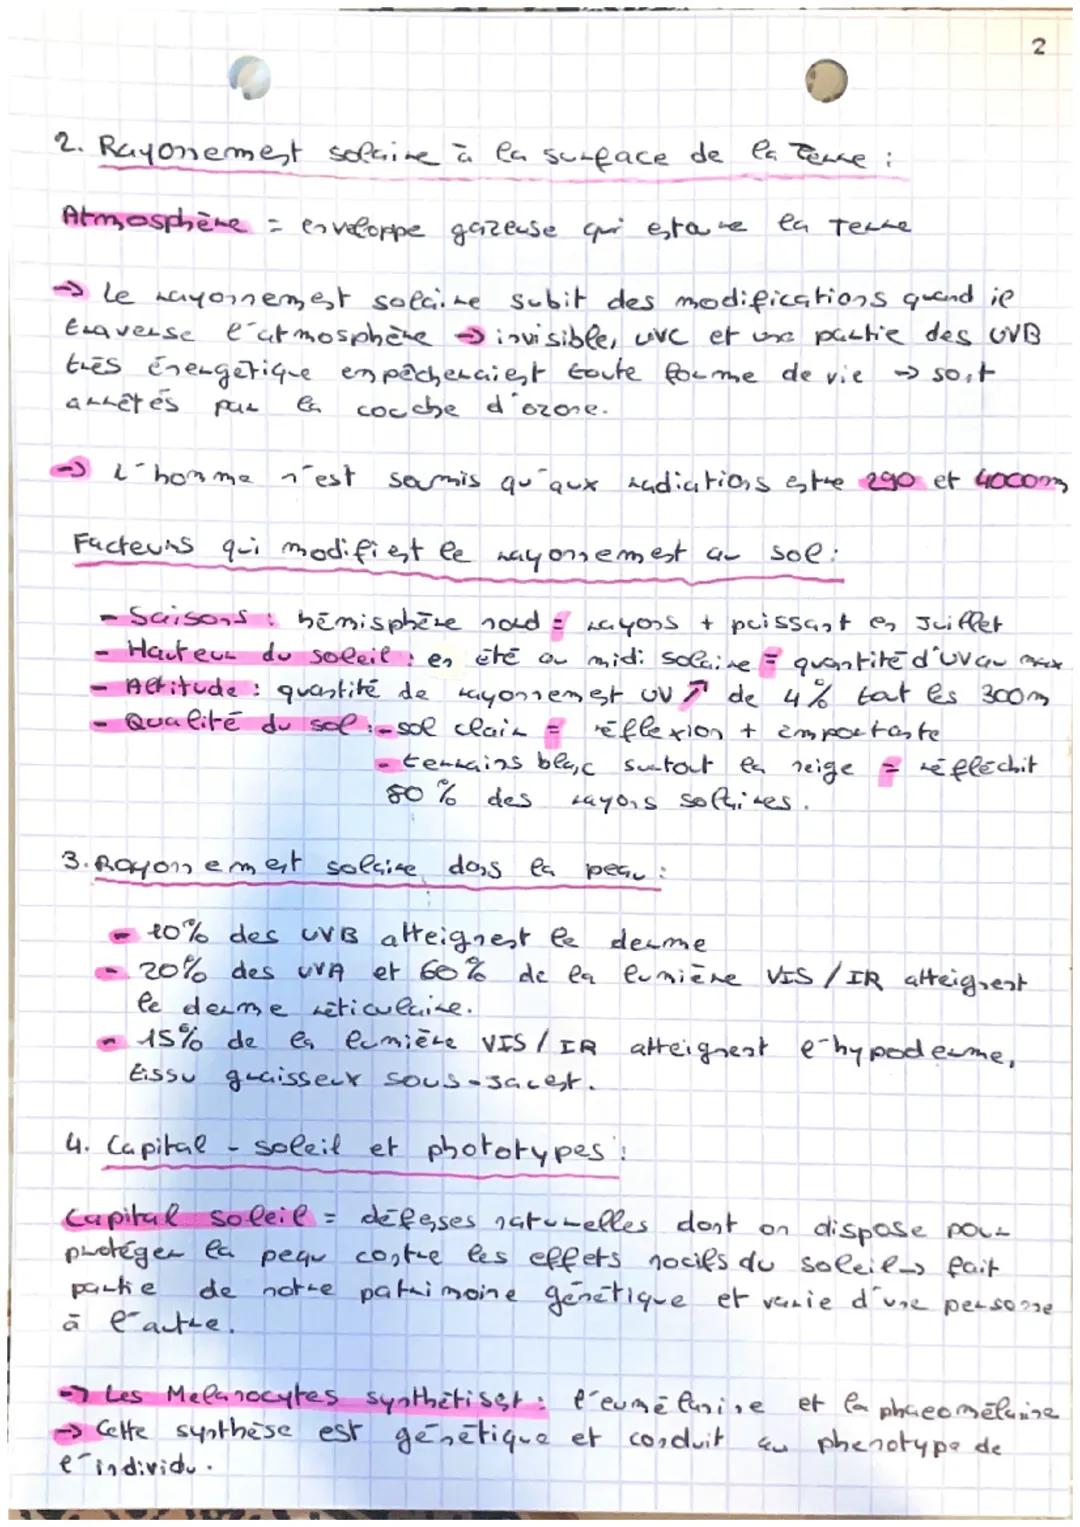 2
2. Rayonnement solaire à la surface de la Terre :
Atmosphère = enveloppe gazeuse qui entoure la Terre
→ Le rayonnement solaire subit des modifications quand il
traverse l'atmosphère → invisible, UVC et une partie des UVB
très énergétique empêcheraient toute forme de vie → sont
arrêtés par la couche d'ozone.
→ L'homme n'est soumis qu'aux radiations entre 290 et 4000nm
Facteurs qui modifient le rayonnement au sol :
- Saisons : hémisphère nord = rayons + puissant en Juillet
- Hauteur du soleil : en été au midi solaire = quantité d'UV au max
- Altitude : quantité de rayonnement UV ↗ de 4% tout les 300m
- Qualité du sol : - sol clair = réflexion + importante
- terrains blanc surtout la neige = réfléchit
80% des rayons solaires.
3. Rayonnement solaire dans la peau :
- 10% des UVB atteignent le derme
- 20% des UVA et 60% de la lumière VIS / IR atteignent
le derme réticulaire.
- 15% de la lumière VIS / IR atteignent l'hypoderme,
tissu graisseux sous-jacent.
4. Capital - soleil et phototypes :
Capital soleil = défenses naturelles dont on dispose pour
protéger la peau contre les effets nocifs du soleil → fait
partie de notre patrimoine génétique et varie d'une personne
à l'autre.
→ Les Mélanocytes synthétisent : l'eumélanine et la phaeomélanine
→ Cette synthèse est génétique et conduit au phenotype de
l'individu.